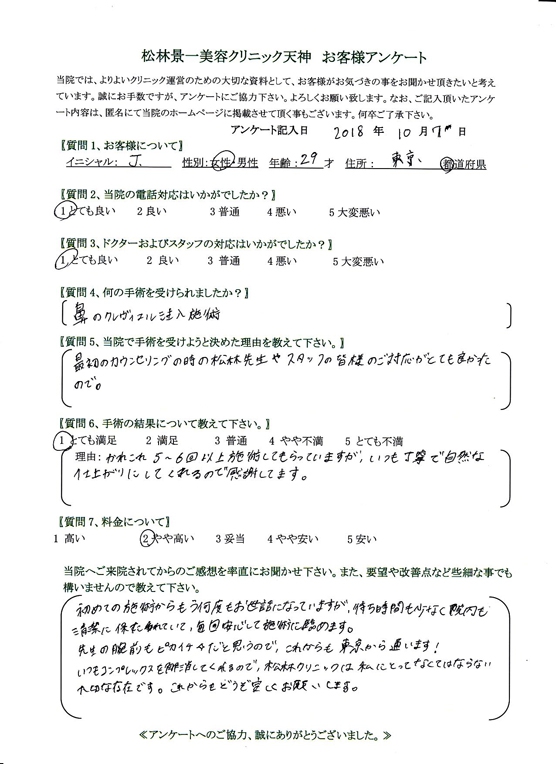 松林景一美容クリニック天神 お客様アンケート
当院では、よりよいクリニック運営のための大切な資料として、お客様がお気づきの事をお聞かせ頂きたいと考え
ています。誠にお手数ですが、アンケートにご協力下さい。よろしくお願い致します。なお、ご記入頂いたアンケ
ート内容は、匿名にて当院のホームページに掲載させて頂く事もございます。何卒ご了承下さい。
アンケート記入日 2018 年 10 月 7 日
〖質問 1、お客様について〗
イニシャル: J. 性別:女性・男性 年齢:29 才 住所: 東京 都道府県
〖質問 2、当院の電話対応はいかがでしたか?〗
1 とても良い 2 良い 3 普通 4 悪い 5 大変悪い
〖質問 3、ドクターおよびスタッフの対応はいかがでしたか?〗
1 とても良い 2 良い 3 普通 4 悪い 5 大変悪い
〖質問 4、何の手術を受けられましたか?〗
鼻のクレヴィエル注入施術
〖質問 5、当院で手術を受けようと決めた理由を教えて下さい。〗
最初のカウンセリングの時の松林先生やスタッフの皆様のご対応がとても良かった
ので。
〖質問 6、手術の結果について教えて下さい。〗
1 とても満足 2 満足 3 普通 4 やや不満 5 とても不満
理由: かれこれ5〜6回以上施術してもらっていますが、いつも丁寧で自然な
仕上がりにしてくれるので感謝してます。
〖質問 7、料金について〗
1 高い 2 やや高い 3 妥当 4 やや安い 5 安い
当院へご来院されてからのご感想を率直にお聞かせ下さい。また、要望や改善点など些細な事でも
構いませんので教えて下さい。
初めての施術からもう何度もお世話になっていますが、待ち時間も少なく院内も
清潔に保たれていて、毎回安心して施術に臨めます。
先生の腕前もピカイチ だと思うので、これからも東京から通います!
いつもコンプレックスを解消してくれるので、松林クリニックは私にとってなくてはならない
大切な存在です。これからもどうぞ宜しくお願いします。
≪アンケートへのご協力、誠にありがとうございました。≫